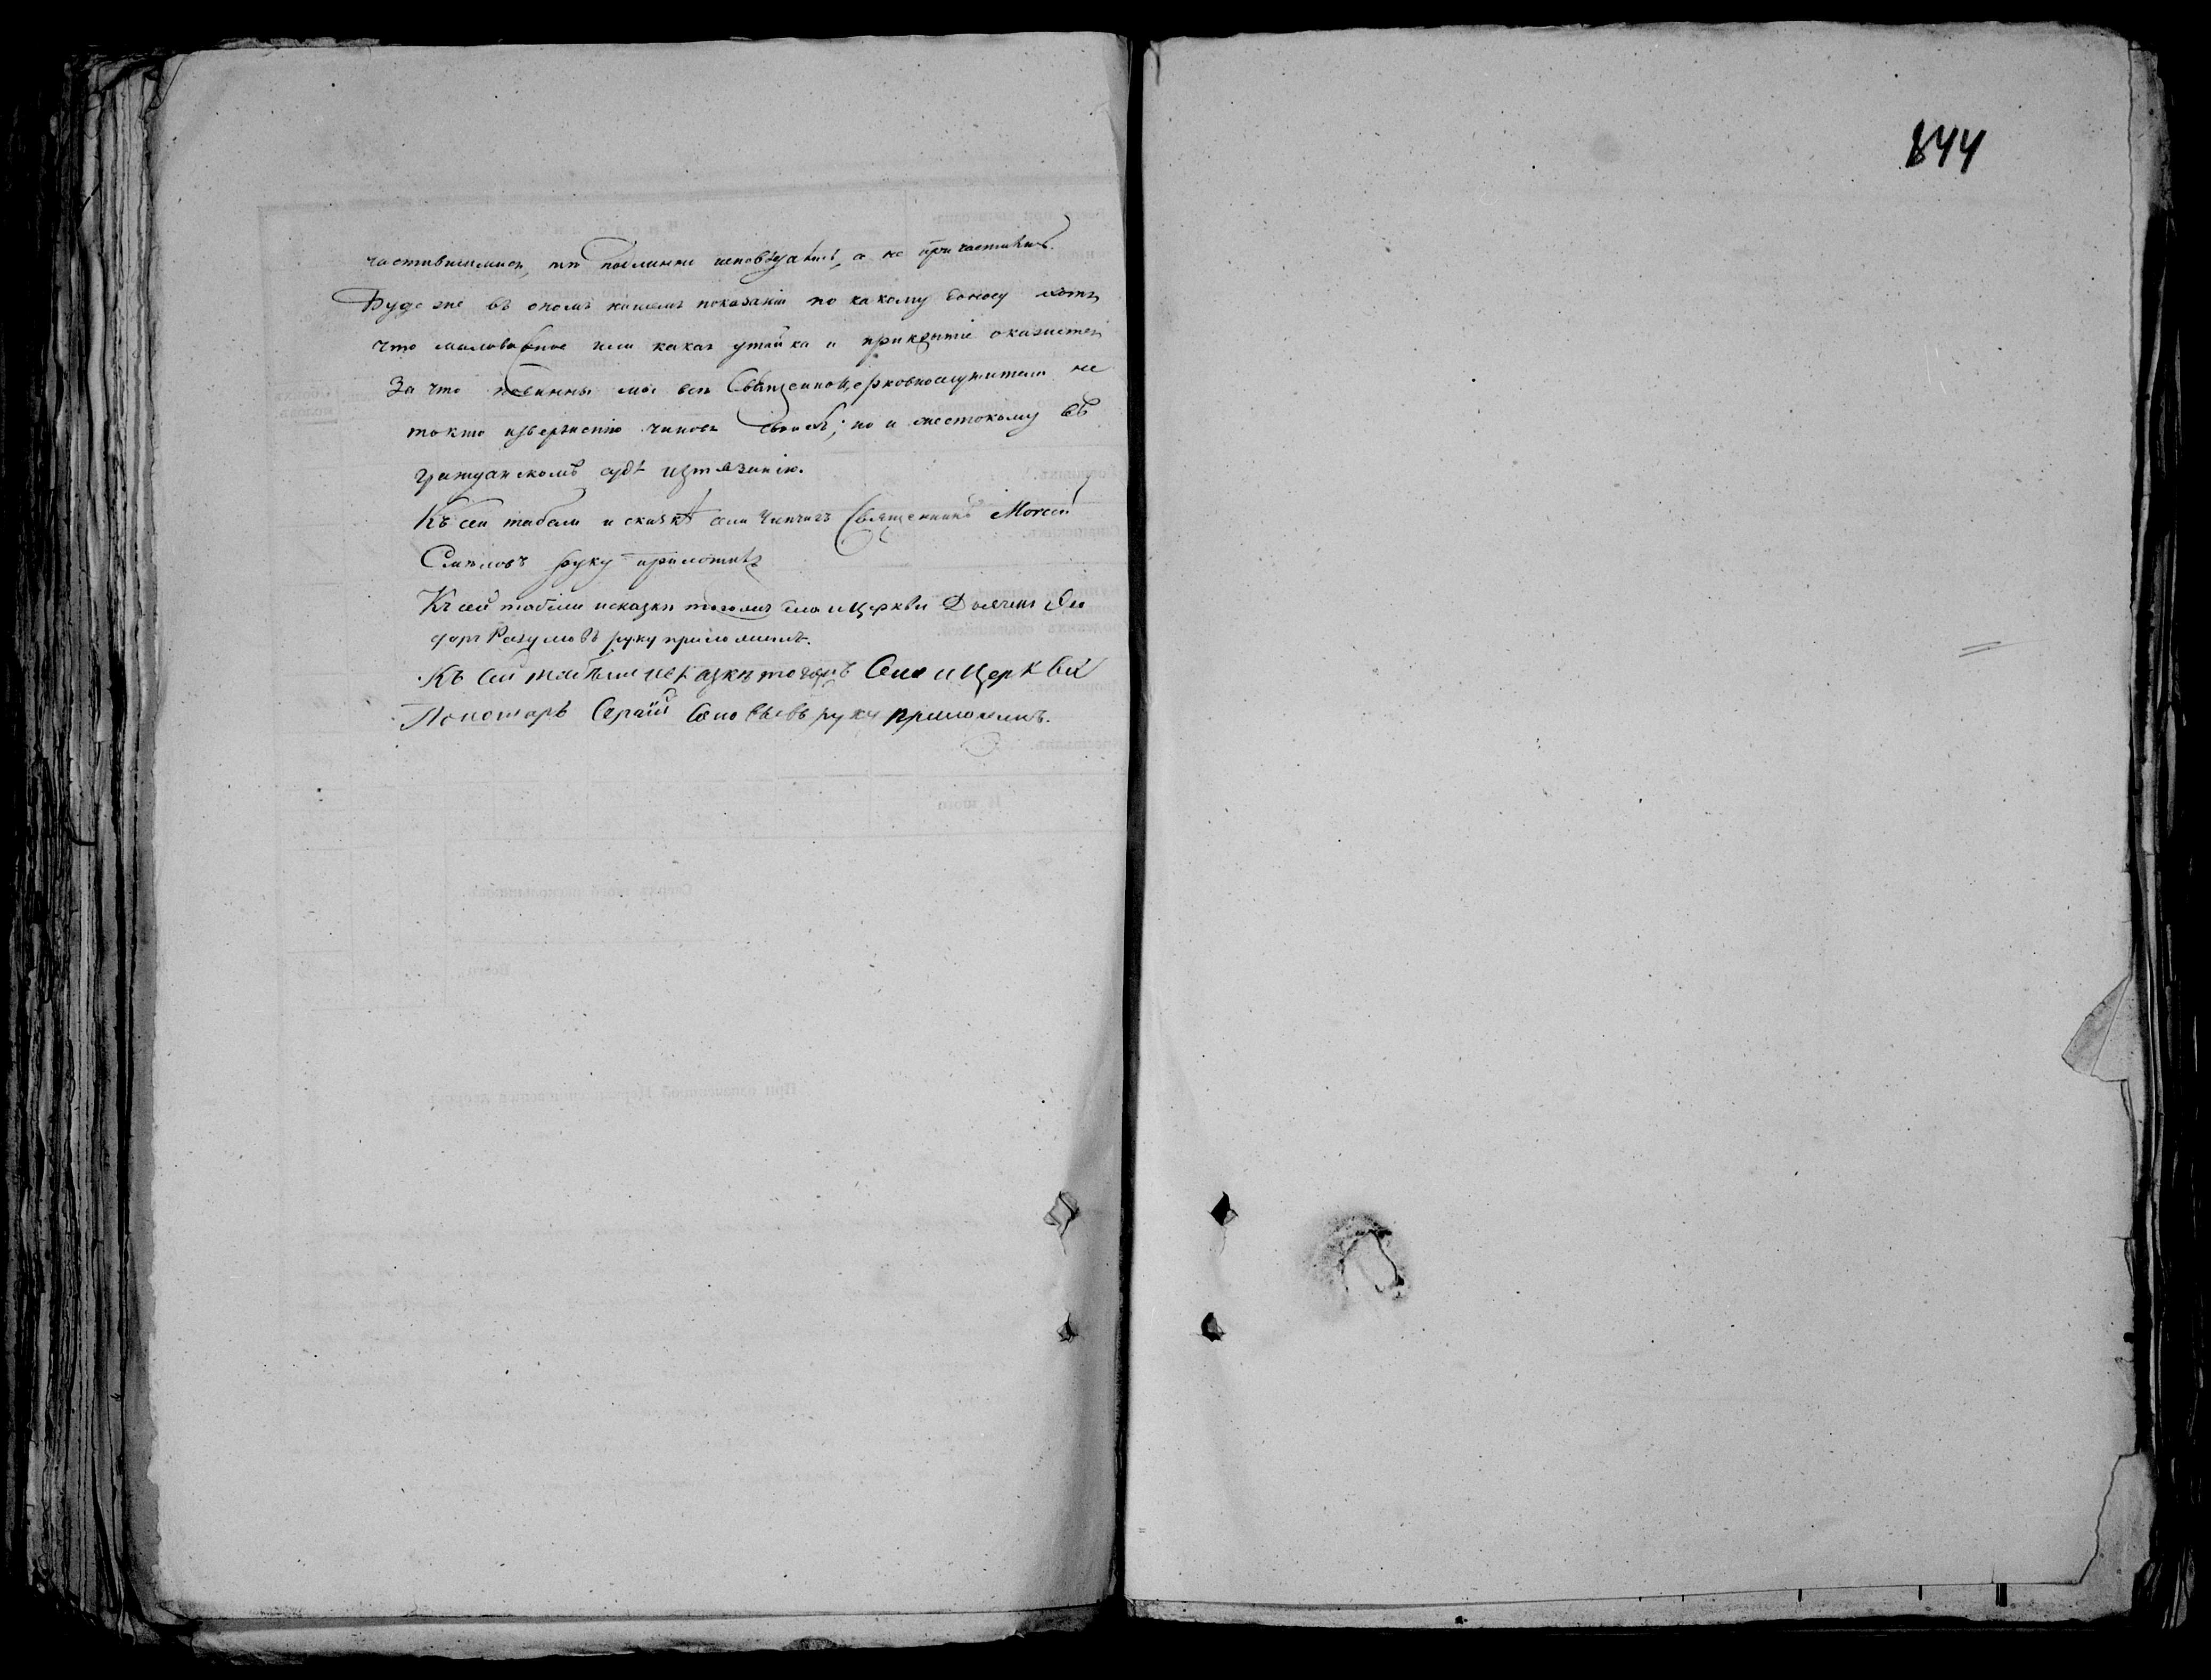 844
частившимися, тѣ подлинно исповѣдались, а не причастились.
Буде же въ ономъ нашемъ показаніи по какому доносу хотя
что маловажное или какая утайка и прикрытіе окажется
За что повинны мы все Священноцерковнослужители не
токмо изверженію чиновъ своихъ; но и жестокому въ
гражданскомъ судѣ изтязанію.
Къ сей табели и сказкѣ села Священникъ Моѵсей
руку приложилъ
Къ сей табели и сказки тогожъ села и церкви Дьячекъ Фео
доръ Разумовъ руку приложилъ.
Къ сей табели и сказкѣ тогожъ села и церкви
Пономарь Сергѣй Соловьевъ руку приложилъ.